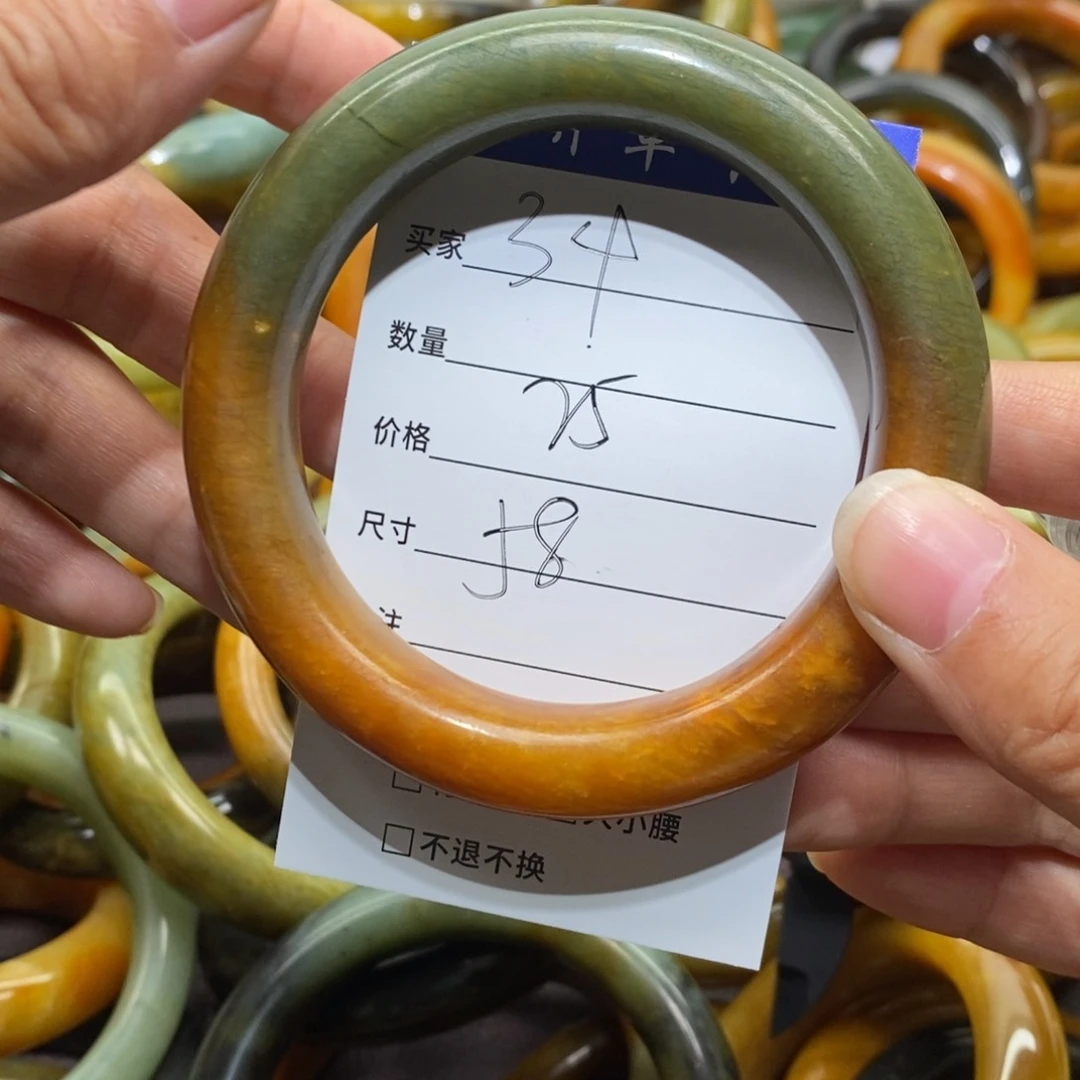 买家 34
数量
价格 75
尺寸 58
注
大小腰
不退不换